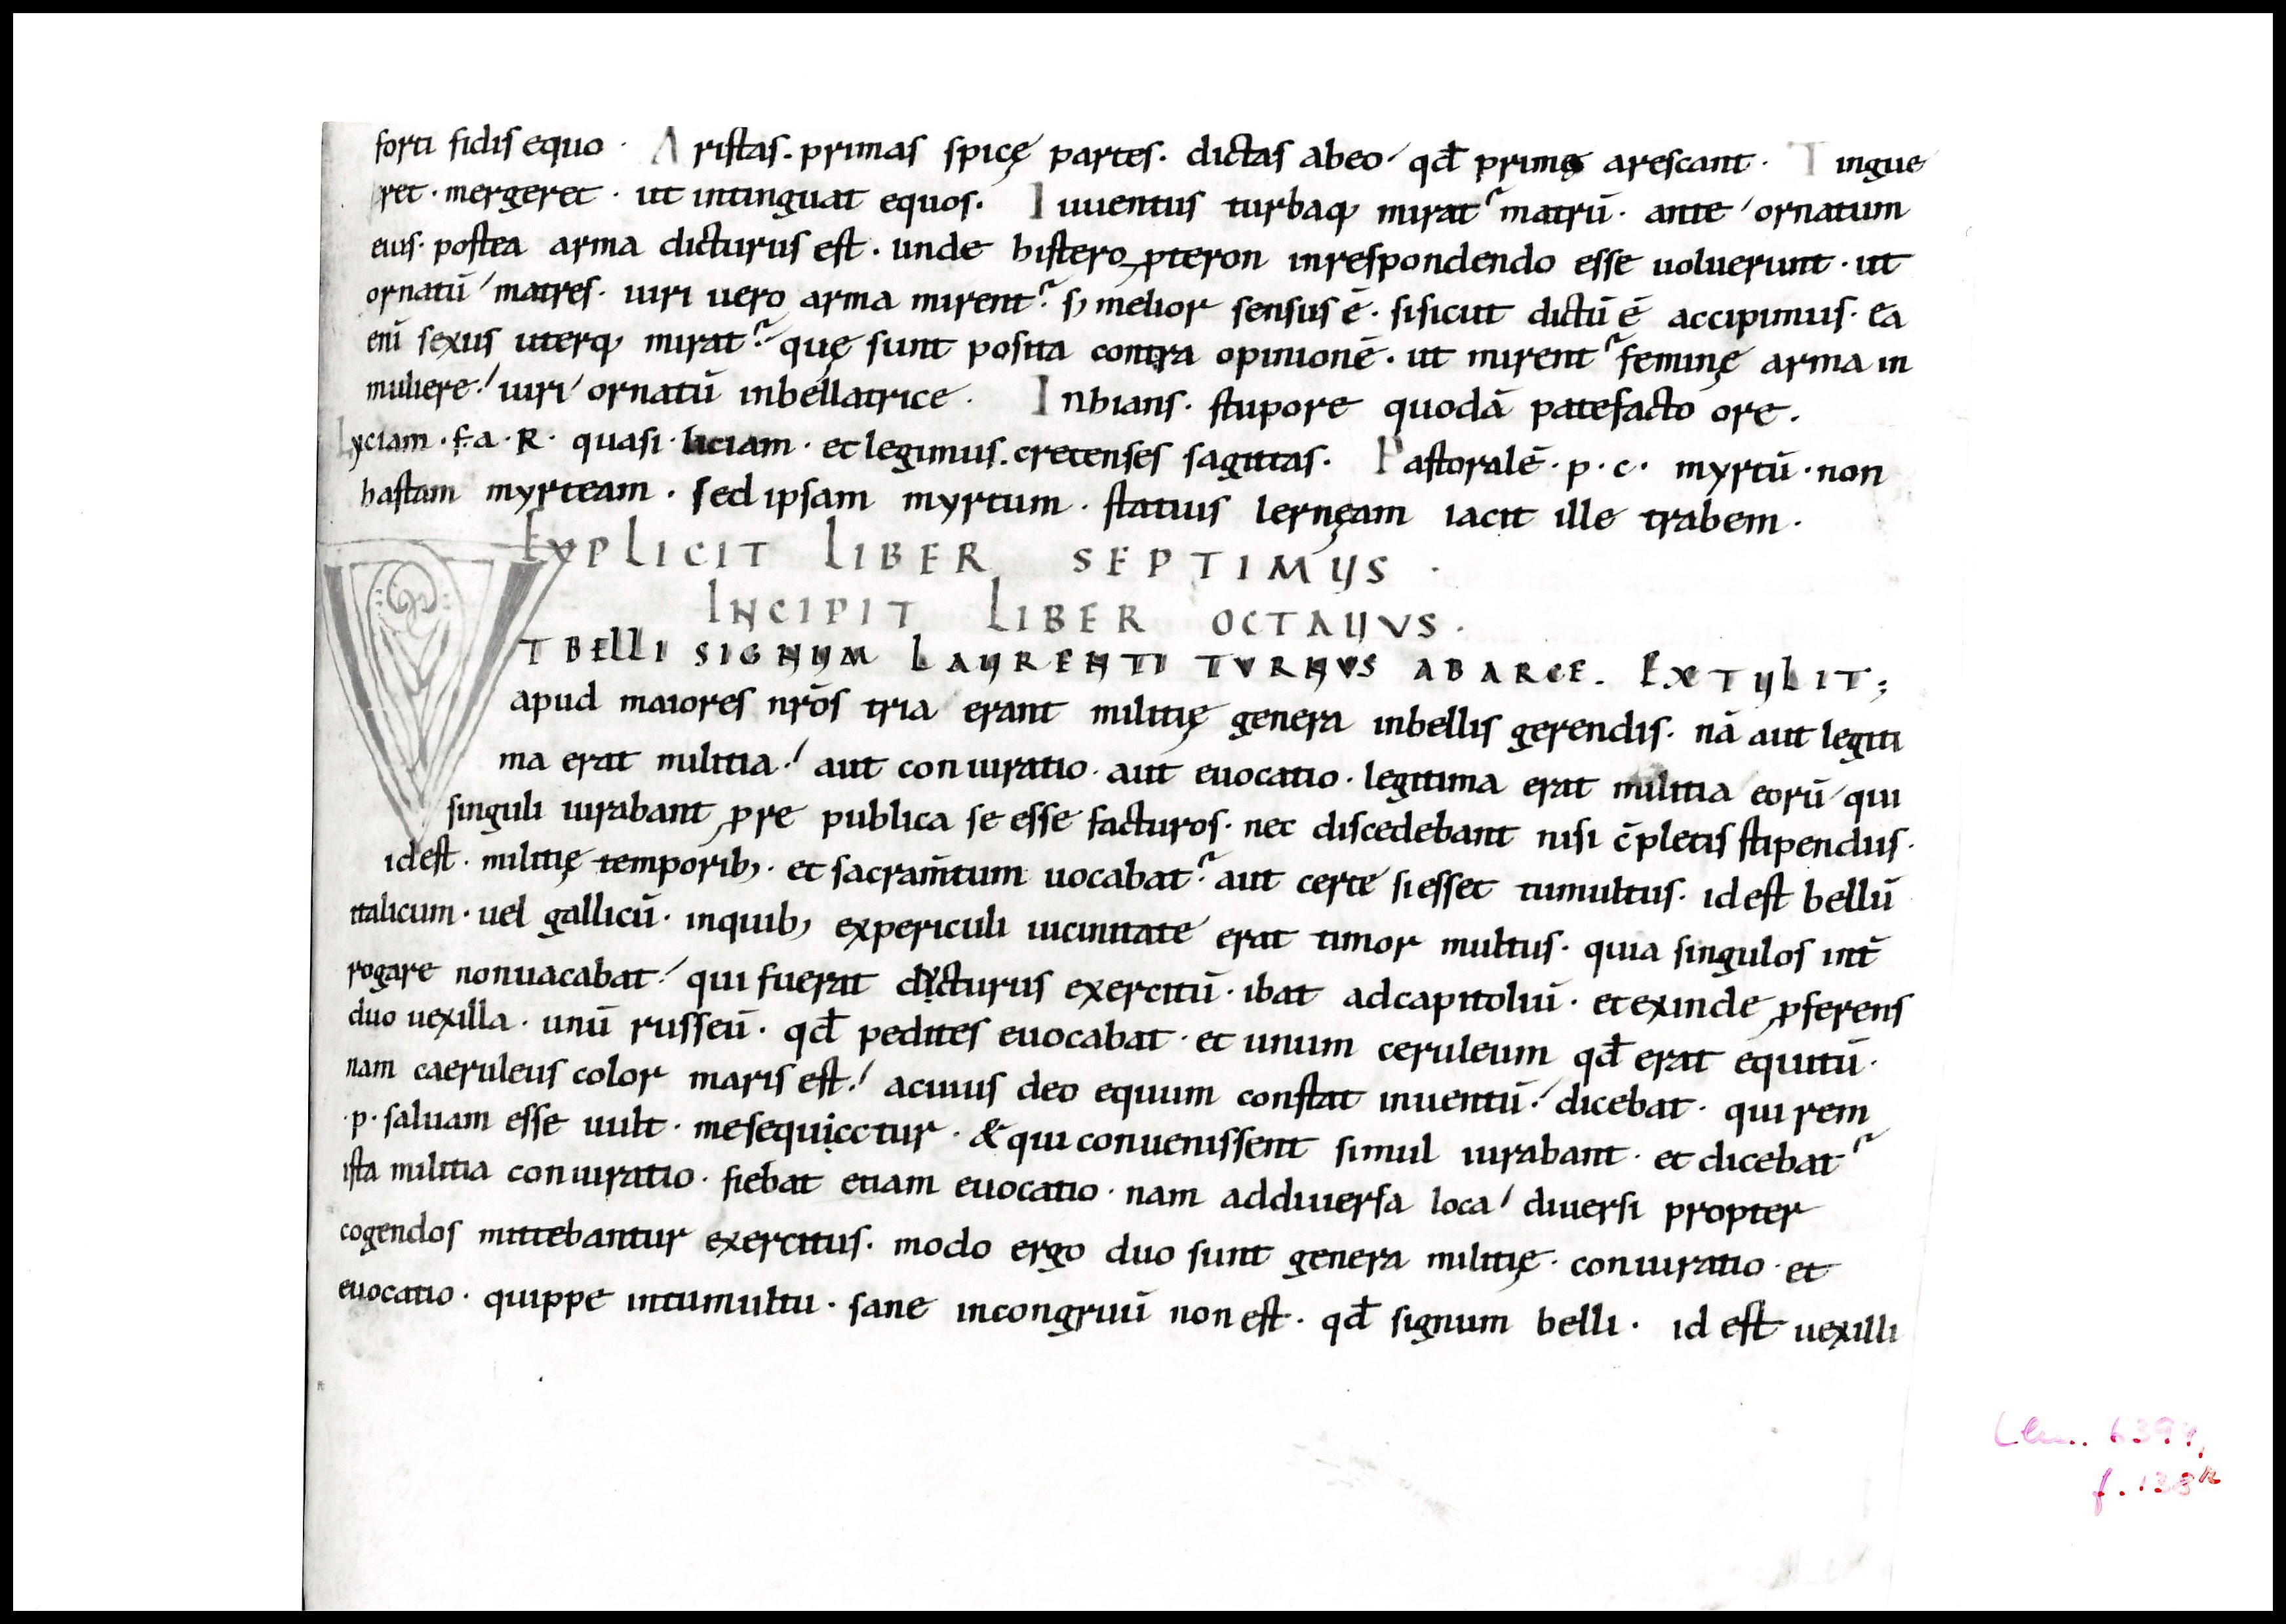 forti fidis equo · Aristas · primas spicę partes · dictas abeo qđ primę arescant · Tingue
ret · mergeret · ut intinguat equos · Iuuentus turbaq; mirat᷑ matrū · ante ornatum
eius · postea arma dicturus est · unde histero ꝓteron inrespondendo esse uoluerunt · ut
ornatū matres · uiri uero arma mirent᷑ · s; melior sensus ē · sisicut dictū ē accipimus · Ea
enī sexus uterq; mirat᷑ quę sunt posita contra opinionē · ut mirent᷑ feminę arma in
muliere · uiri ornatū inbellatrice · Inhians · stupore quodā patefacto ore ·
Lyciam · f · a · R · quasi liciam · et legimus · cretenses sagittas · Pastoralē · p · c · myrtū · non
hastam myrteam · sed ipsam myrtum · statius lernęam iacit ille trabem ·
EXPLICIT LIBER SEPTIMUS ·
INCIPIT LIBER OCTAUVS ·
VT BELLI SIGNUM LAURENTI TVRNVS ABARCE · EXTULIT ;
apud maiores nrōs tria erant militię genera inbellis gerendis · nā aut legiti
ma erat militia · aut coniuratio · aut euocatio · legitima erat militia eorū qui
singuli iurabant ꝓ re publica se esse facturos · nec discedebant nisi c̄pletis stipendiis ·
id est · militię temporib; · et sacram̄tum uocabat᷑ · aut certe si esset tumultus · id est bellū
italicum · uel gallicū · inquib; expericuli uicinitate erat timor multus · quia singulos int̄
rogare nonuacabat · qui fuerat ducturus exercitū · ibat adcapitoliū · et exinde ꝓferens
duo uexilla · unū russeū · qđ pedites euocabat · et unum ceruleum qđ erat equitū ·
nam caeruleus color maris est · acuius deo equum constat inuentū · dicebat · qui rem
· p · saluam esse uult · mesequicctur · & qui conuenissent simul iurabant · et dicebat᷑
ista militia coniuratio · fiebat etiam euocatio · nam addiuersa loca diuersi propter
cogendos mittebantur exercitus · modo ergo duo sunt genera militię · coniuratio · et
euocatio · quippe intumultu · sane incongruū non est · qđ signum belli · id est uexilli
Clm. 6394,
f. 138